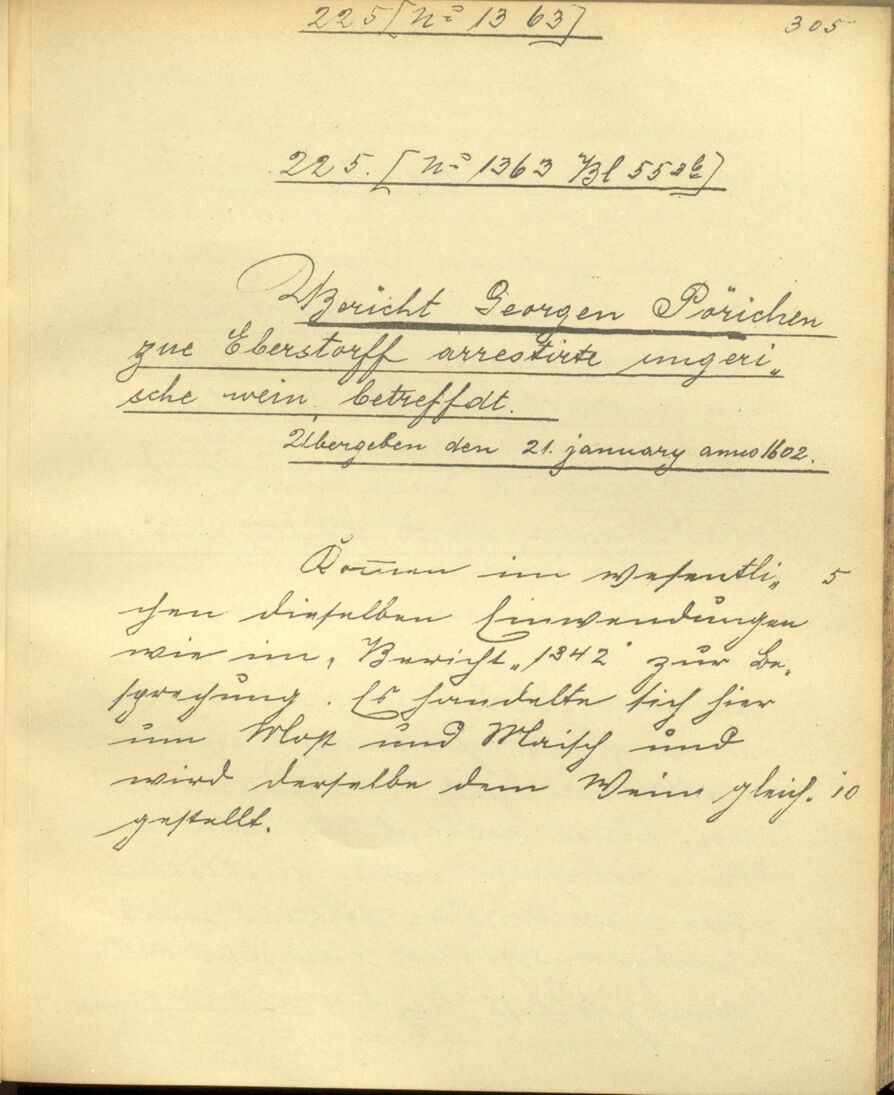 225 [No 1363]
305
225. [No 1363 Bl 553b]
Bericht Georgen Pörichen
zue Eberstorff arrestirte ungeri„
sche wein betreffdt.
Übergeben den 21. january anno 1602.
Komen im wesentli„ 5
chen dieselben Einwendungen
wie im „Bericht„ 1342 zur Be„
sprechung. Es handelte sich hier
um Most und Maisch und
wird derselbe dem Weine gleich. 10
gestellt.